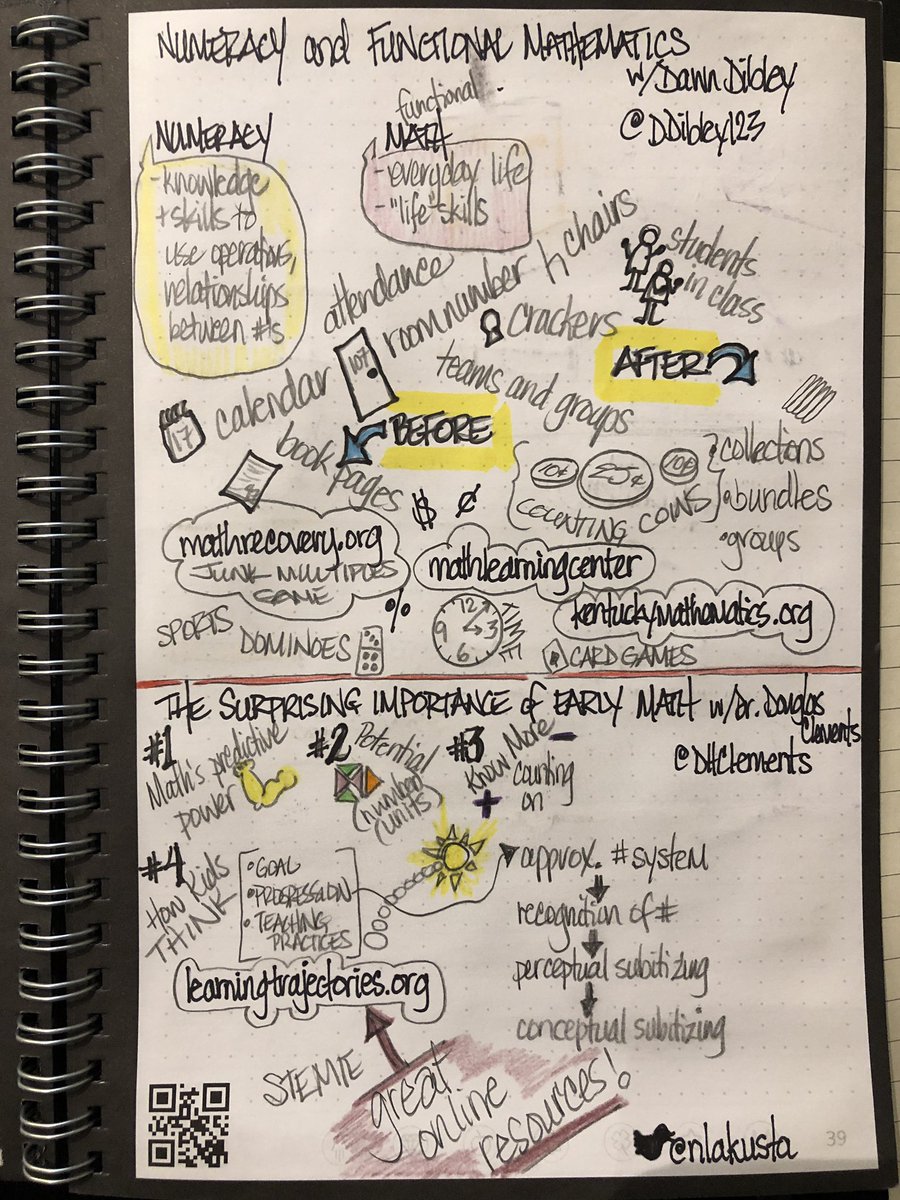 NUMERACY and FUNCTIONAL MATHEMATICS
w/Dawn Dibley
@DDibley123
NUMERACY
-knowledge
+ skills to
use operations,
relationships
between #s
functional
MATH
-everyday life
-"life" skills
attendance
room number
chairs
students
in class
crackers
AFTER
107
teams and groups
calendar
17
BEFORE
book
pages
$ ¢
10¢ 25¢ 10¢
COUNTING COINS
collections
bundles
groups
mathrecovery.org
JUNK MULTIPLES
GAME
mathlearningcenter
kentuckymathematics.org
SPORTS
%
DOMINOES
12
9 3
6
TIME
CARD GAMES
THE SURPRISING IMPORTANCE of EARLY MATH w/Dr. Douglas
Clements
@DHClements
#1
Math's predictive
power
#2 Potential
(number
units)
#3
Know More
- counting
+ on
#4
How Kids
THINK
•GOAL
•PROGRESSION
•TEACHING
PRACTICES
approx. #system
recognition of #
perceptual subitizing
conceptual subitizing
learningtrajectories.org
STEMIE
great
online
resources!
@nlakusta
39